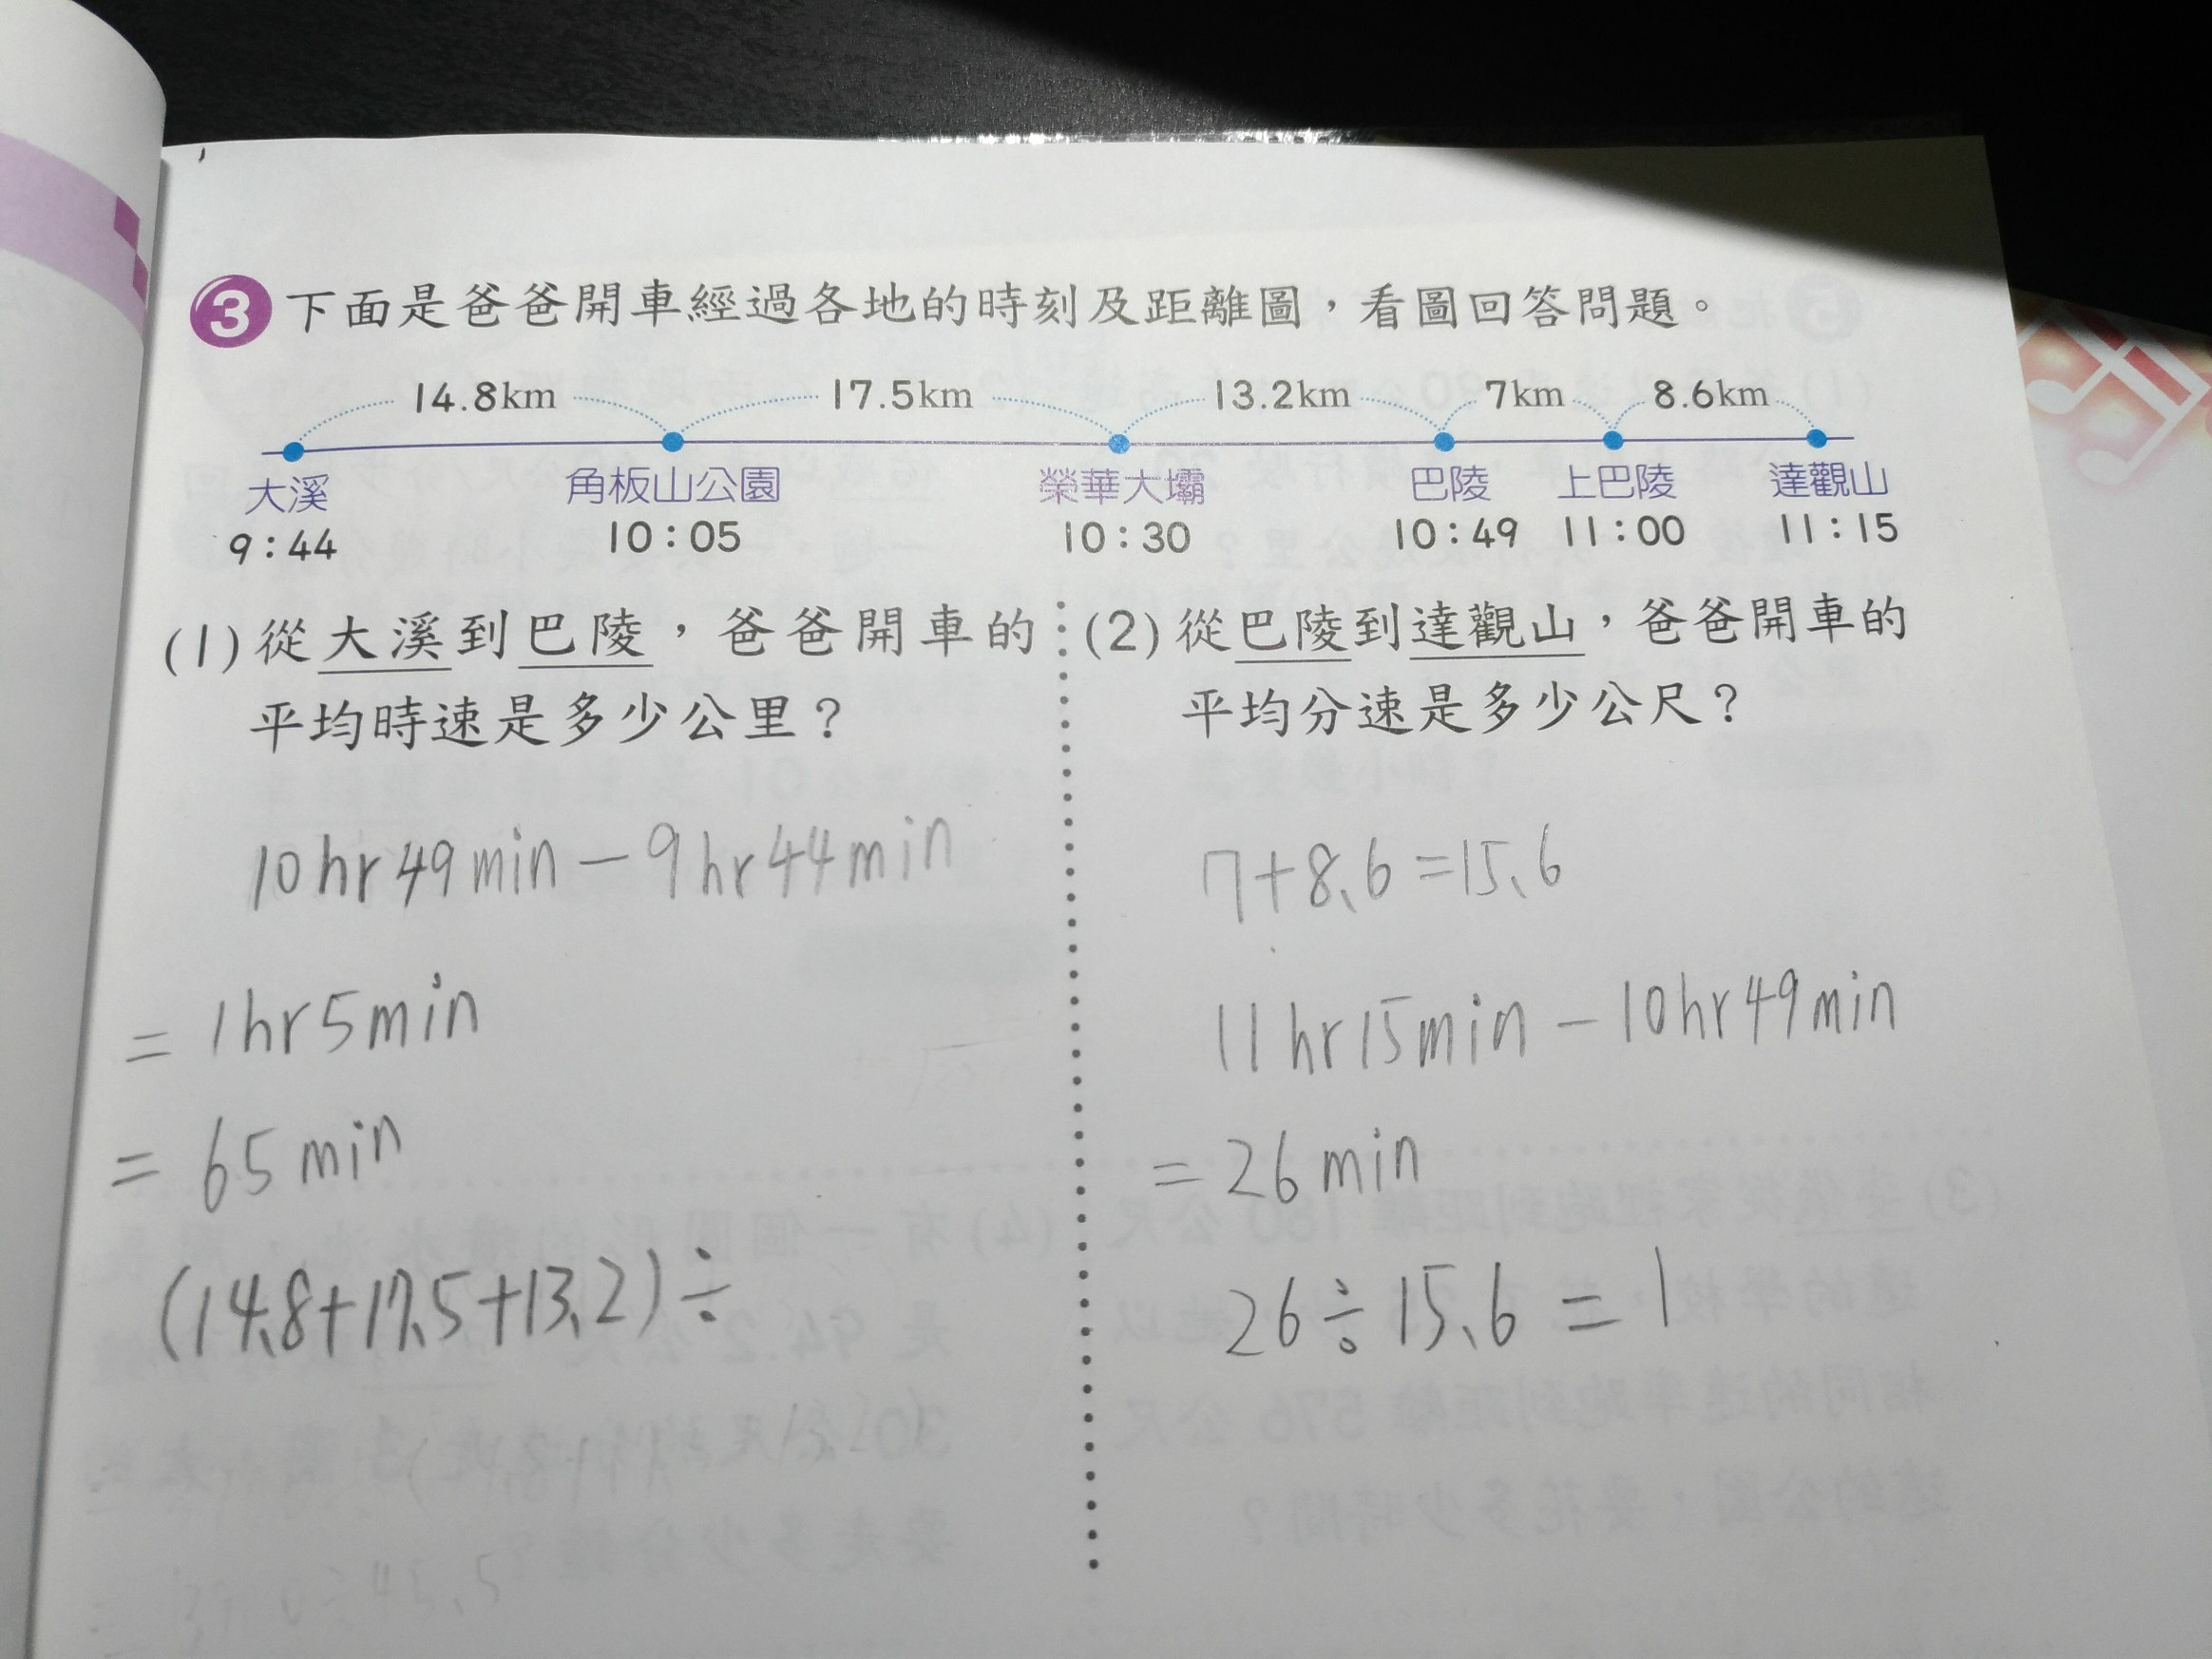 3 下面是爸爸開車經過各地的時刻及距離圖，看圖回答問題。
14.8km 17.5km 13.2km 7km 8.6km
大溪 角板山公園 榮華大壩 巴陵 上巴陵 達觀山
9:44 10:05 10:30 10:49 11:00 11:15
(1) 從大溪到巴陵，爸爸開車的
平均時速是多少公里？
10hr49min－9hr44min
= 1hr5min
= 65min
(14.8+17.5+13.2)÷
(2) 從巴陵到達觀山，爸爸開車的
平均分速是多少公尺？
7+8.6=15.6
11hr15min－10hr49min
= 26min
26÷15.6=1